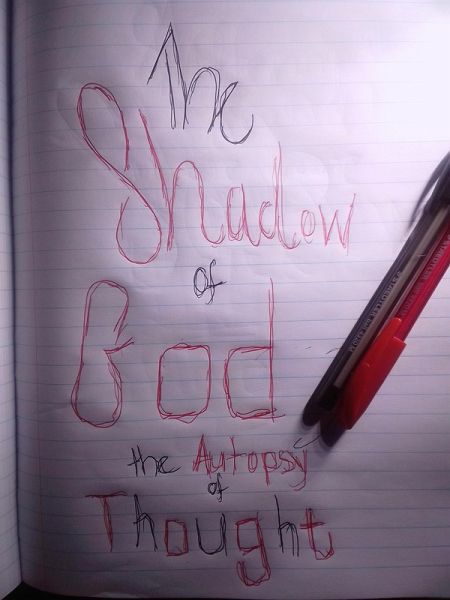 The
Shadow
of
God
the Autopsy
of
Thought